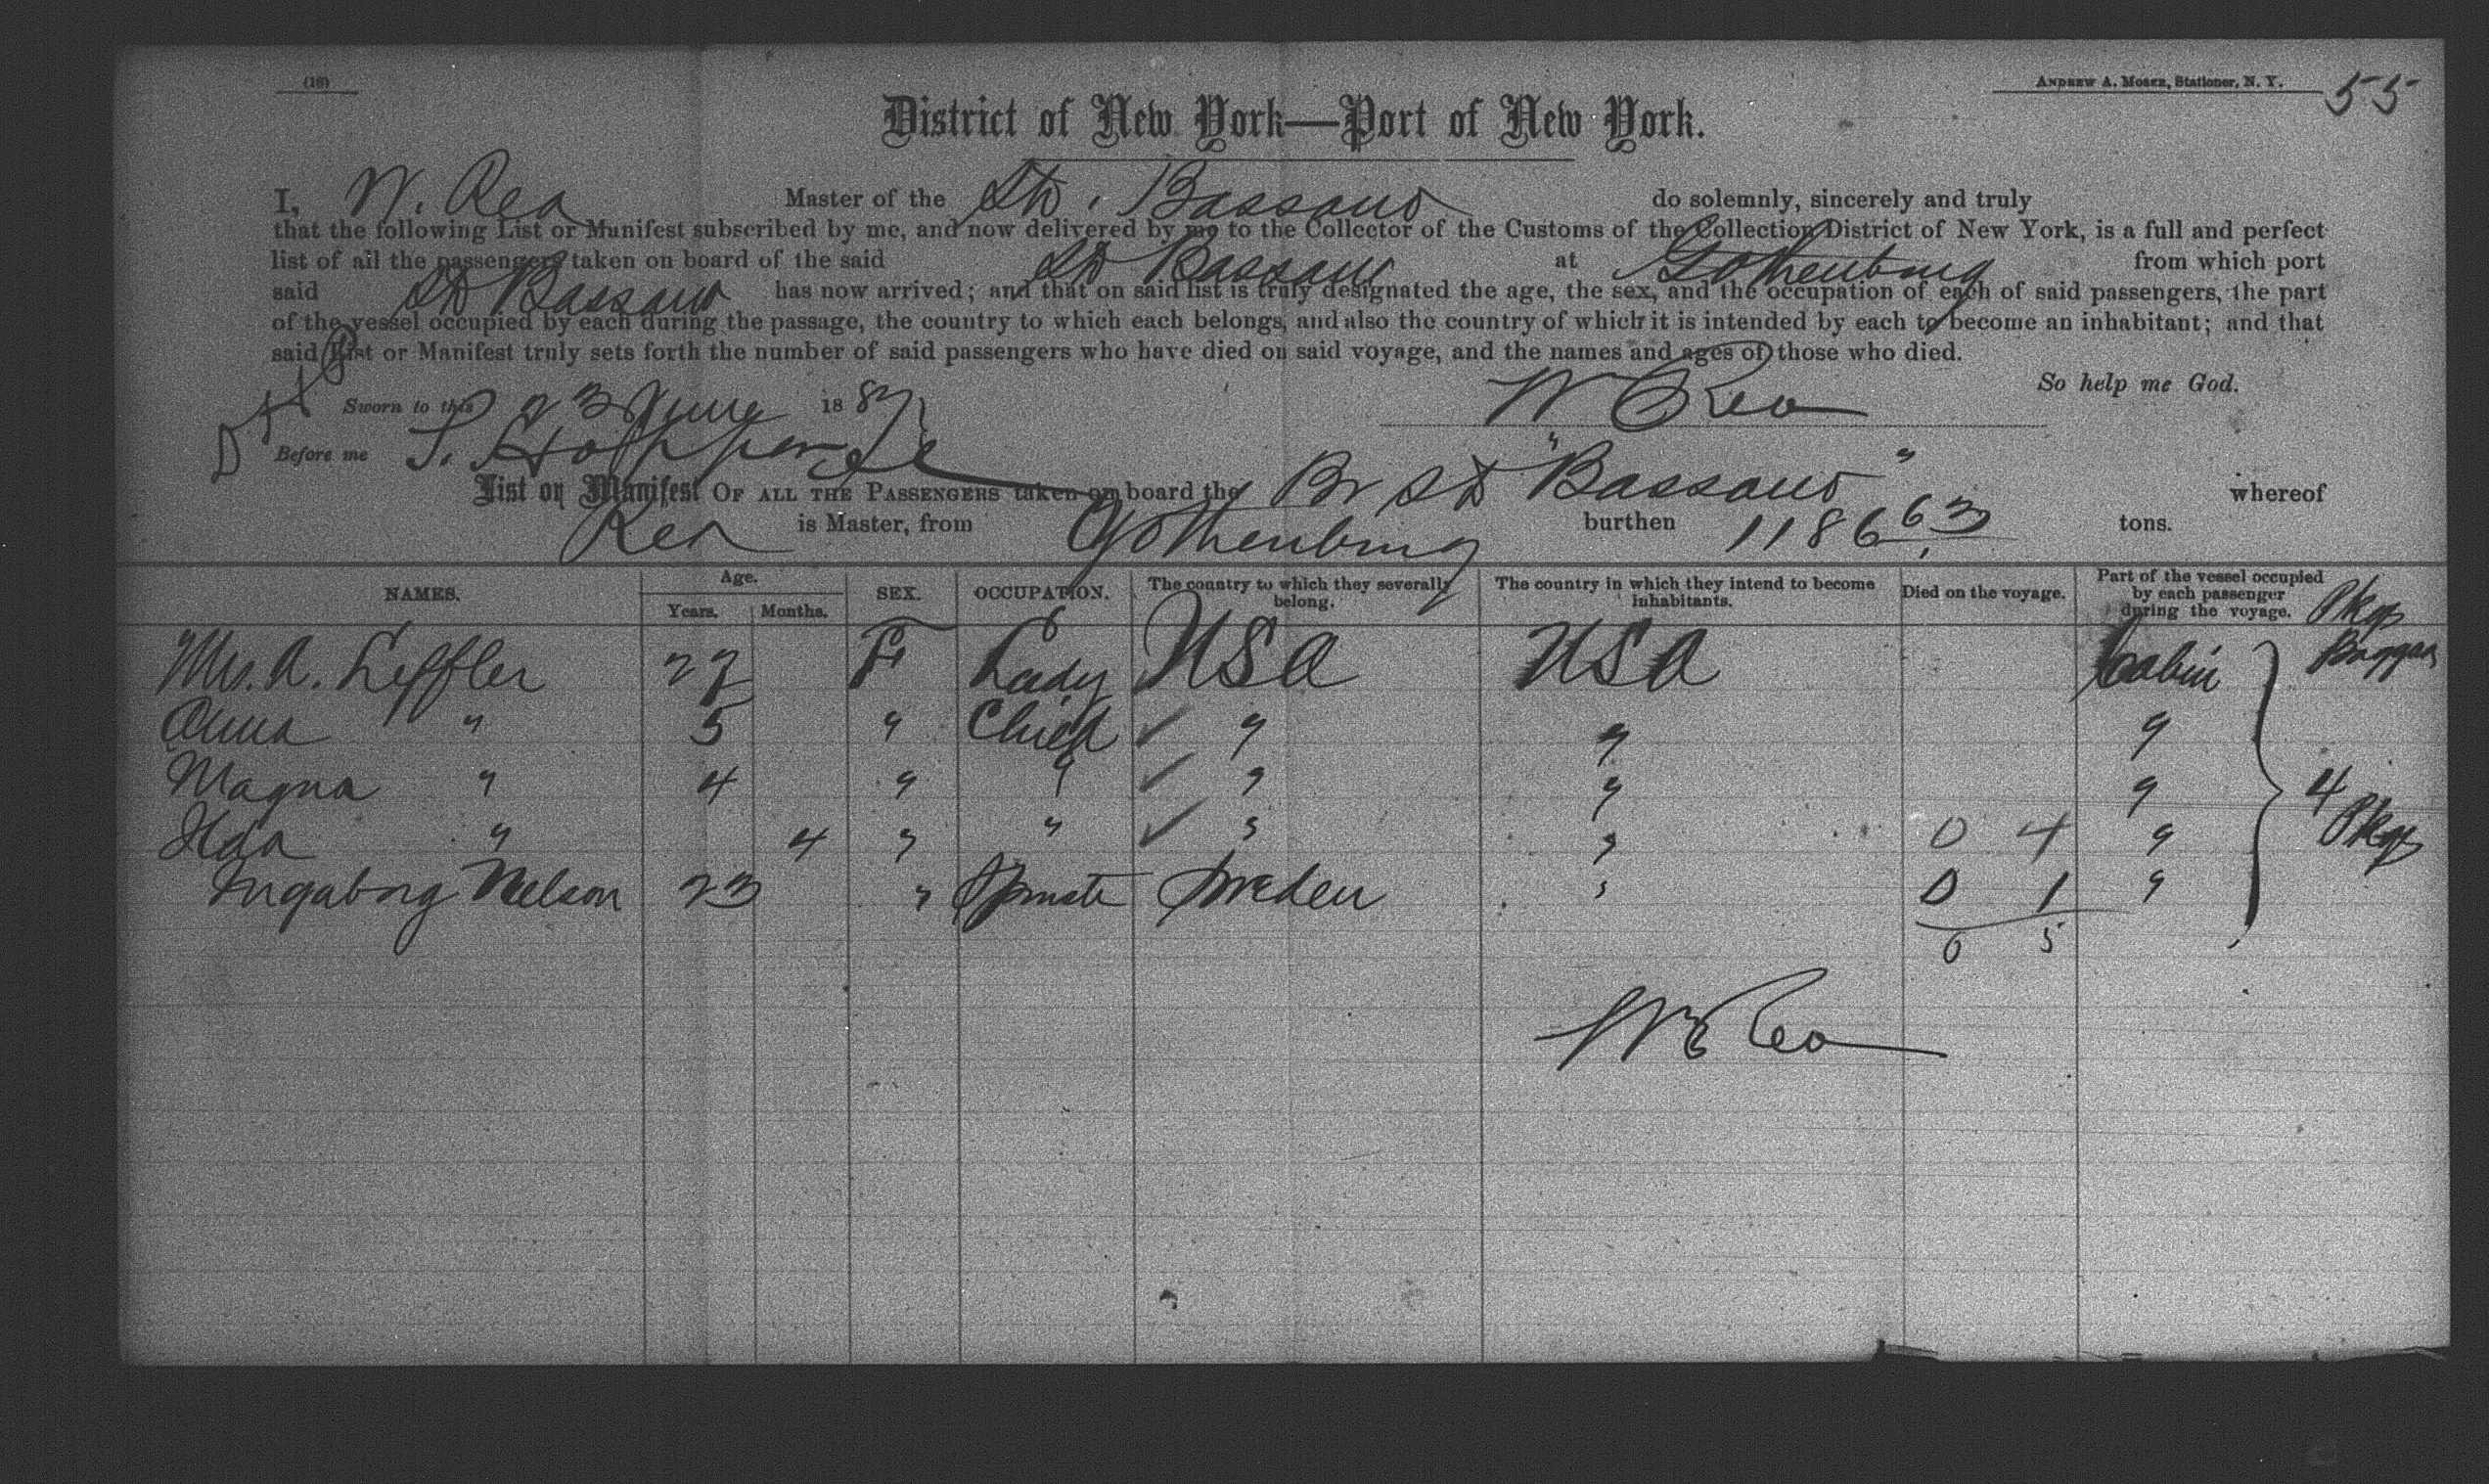 (18)
ANDREW A. MOSER, Stationer, N. Y.
55
District of New York—Port of New York.
I, W. Rea Master of the Str. Bassano do solemnly, sincerely and truly
that the following List or Manifest subscribed by me, and now delivered by me to the Collector of the Customs of the Collection District of New York, is a full and perfect
list of all the passengers taken on board of the said SS Bassano at Gothenburg from which port
said SS Bassano has now arrived; and that on said list is truly designated the age, the sex, and the occupation of each of said passengers, the part
of the vessel occupied by each during the passage, the country to which each belongs, and also the country of which it is intended by each to become an inhabitant; and that
said List or Manifest truly sets forth the number of said passengers who have died on said voyage, and the names and ages of those who died.
So help me God.
Sworn to this 23 June 1887 W Rea
Before me
List or Manifest OF ALL THE PASSENGERS taken on board the Br SS "Bassano" whereof
Rea is Master, from Gothenburg burthen 1186 63 tons.
NAMES. Age. Years. Months. SEX. OCCUPATION. The country to which they severally belong. The country in which they intend to become inhabitants. Died on the voyage. Part of the vessel occupied by each passenger during the voyage. Pkgs
Mrs. A. Leffler F Lady USA USA Cabin
Anna " 5 " Child " " "
Magna " 4 " " " " " 4 Pkgs
Ida " 4 " " " " 0 4 "
Ingaborg Nelson 23 " Sweden " 0 1 "
0 5
W Rea